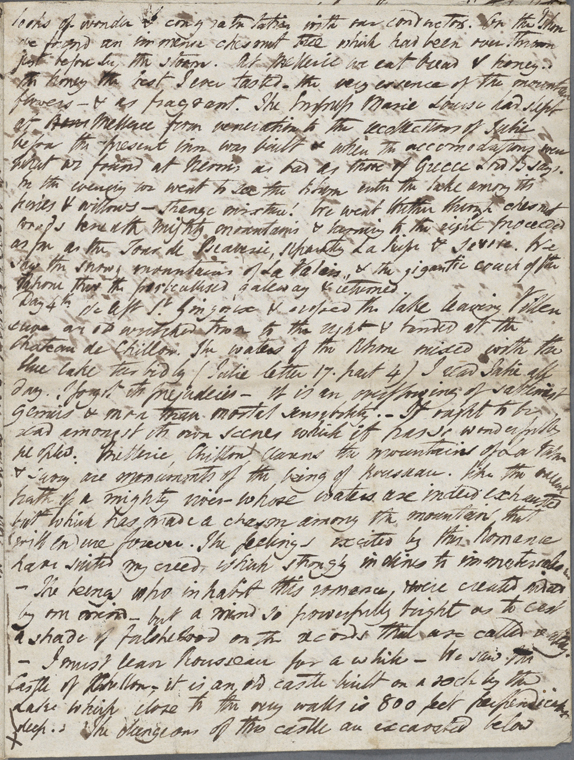 looks of wonder & congratulation with our conductors. On the
we found an immense chesnut tree which had been overthrown
just before by the storm. At Mellerie we eat bread & honey.
the honey the best I ever tasted - the very essence of the mountain
flowers - & as fragrant. The Empress Marie Louise had slept
at Mellerie from veneration to the recollections of Julie
before the present inn was built & when the accomodations were
what we found at Nerni as bad as those of Greece Lord B says.
In the evening we went to see the Rhone with the lake among the
& willows - strange mixture! We went thither through chesnut
beneath mighty mountains & the right proceeded
as far as the Tour de separating La & We
saw the snowy mountains of La Valais, & the gigantic of the
Rhone thro the gateway & returned
Day 4th we left St. Gingoux & crossed the lake leaving Villen
euve an old wretched town to the right & landed at the
Chateau de Chillon. The waters of the Rhone mixed with the
blue lake (Julie letter 17. part 4) I read Julie all
day. the prejudices - it is an overflowing of sublimest
genius & more than mortal sensibility. - It ought to be
read amongst its own scenes which it has so wonderfully
peopled. Mellerie Chillon Clarens the mountains of La Valais
& Savoy are monuments of the being of Rousseau. Like the
path of a mighty river whose waters are indeed exhausted
but which has made a chasm among the mountains that
will endure forever. The feelings excited by this Romance
have suited my creed, which strongly inclines to immaterialism
- The beings who inhabit this romance, were created indeed
by one mind - but a mind so powerfully bright as to cast
a shade of falshood on the records that are called reality.
- I must leave Rousseau for a while - We saw the
Castle of Chillon, it is an old castle built on a rock by the
Lake which close to the very walls is 800 feet perpendicular
deep. : The dungeons of this castle are excavated below